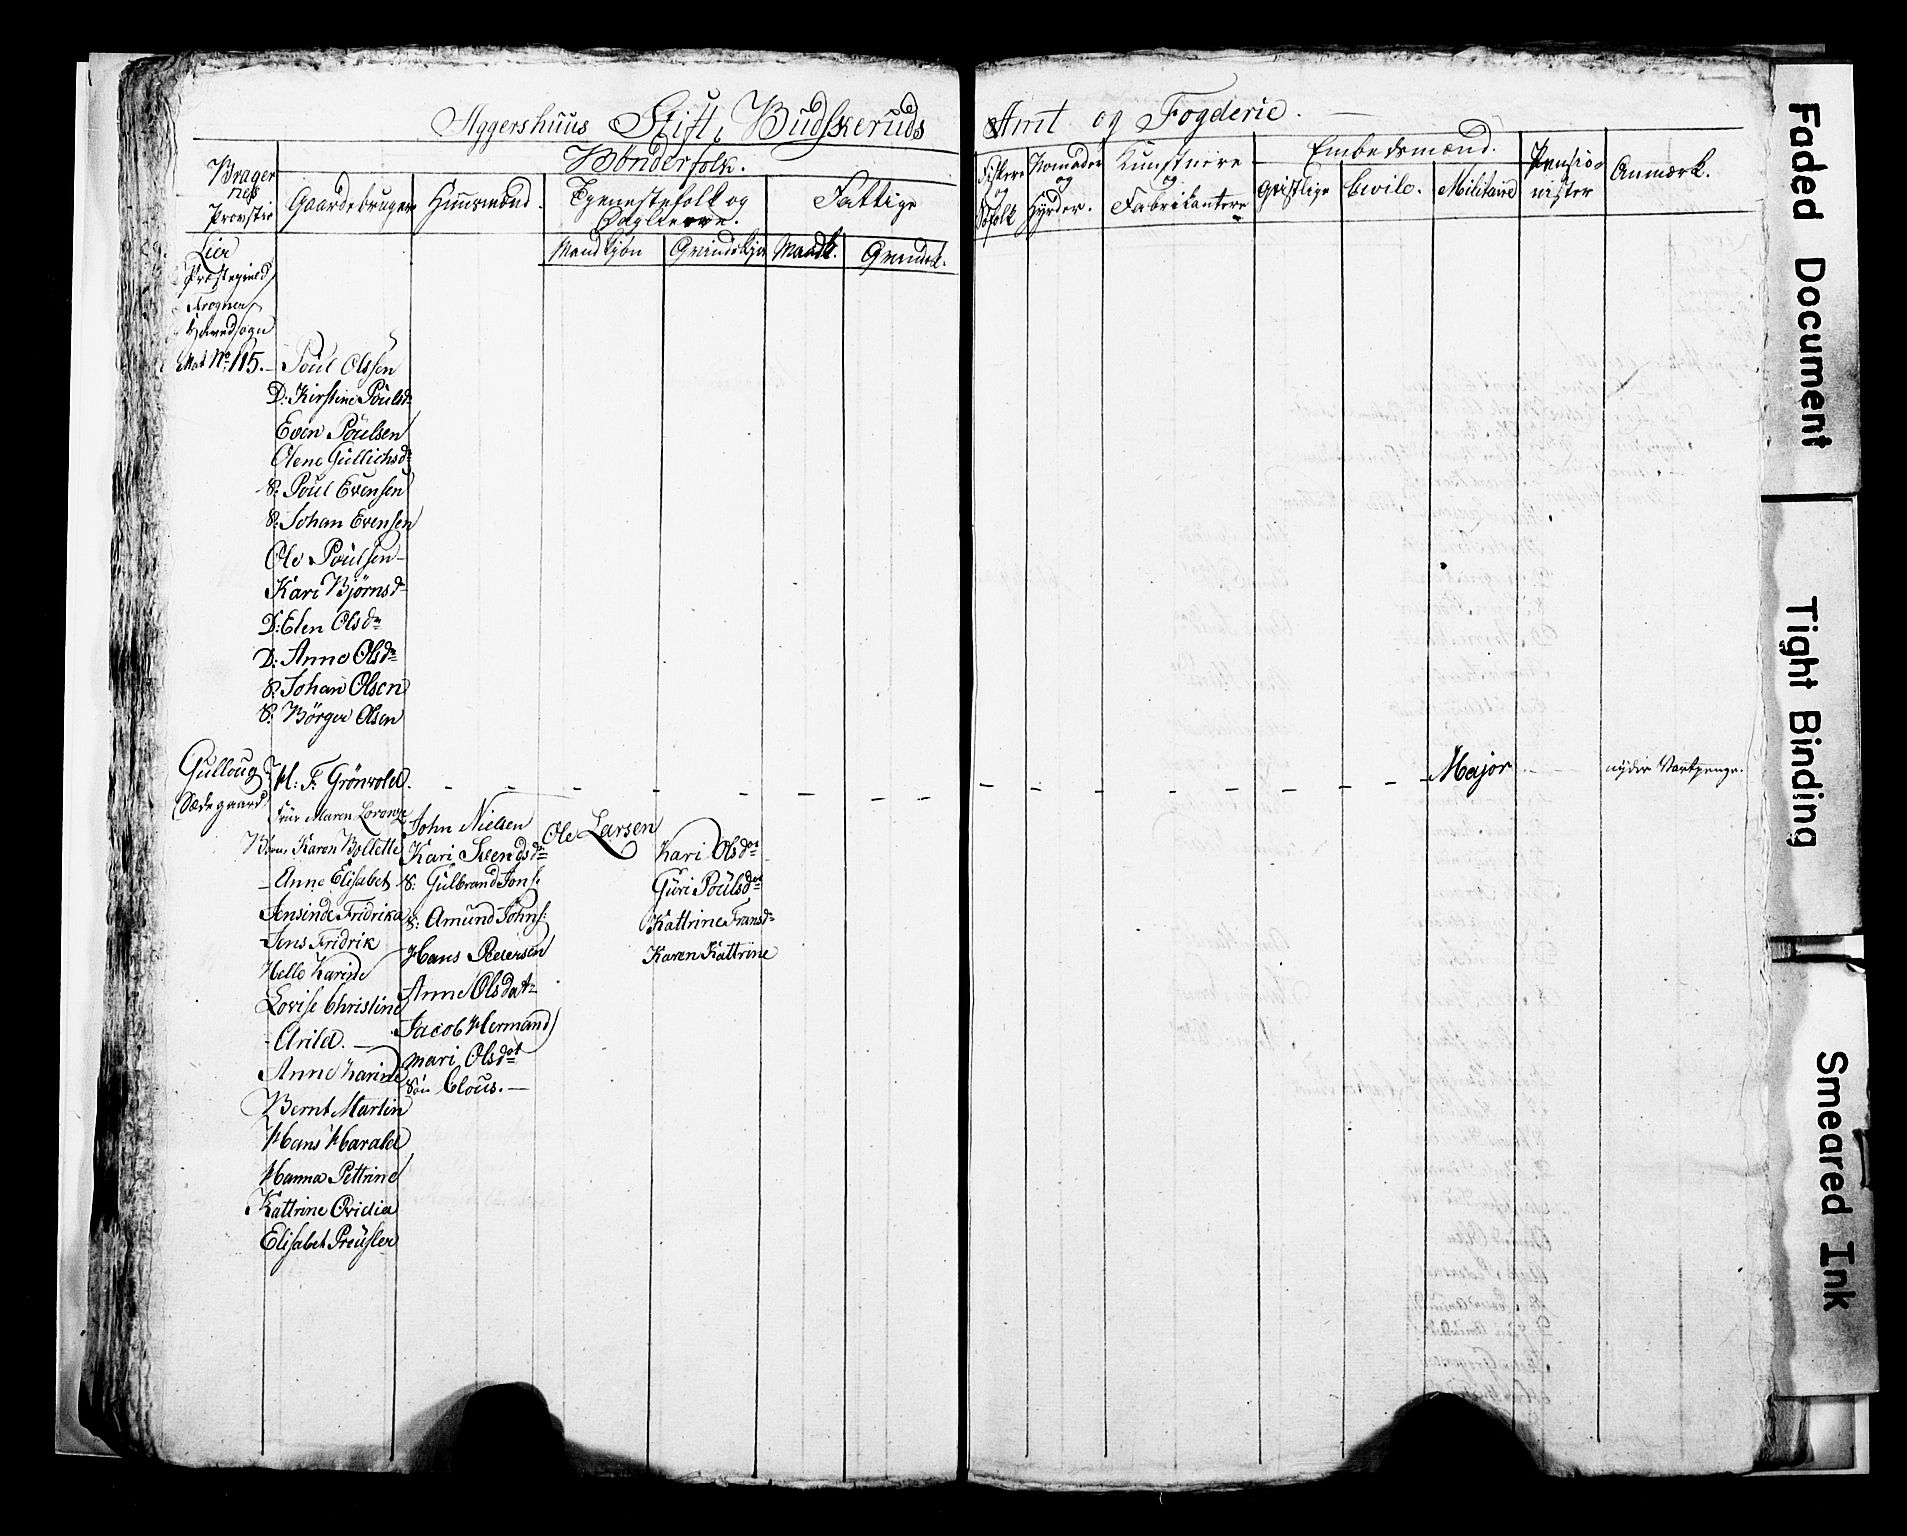 Aggershuus Stift, Budskeruds Amt og Fogderie.
Brager
ness
Provstie
Bønderfolk.
Gaardebruger
Huusmænd.
Tjenestefolk og
Dagleiere.
Fattige
Mandkjøn
Qvindekjøn
Mandk.
Qvindek.
Fiskere
og
Søfolk
Nomader
og
Hyrder.
Kunstnere
og
Fabrikantere
Embedsmænd.
Geistlige
Civile.
Militaire
Pensio-
nister
Anmærk.
Lier
Præstegield
Frogner
Hovedsogn
Mat No. 115.
Poul Olssen
D: Kirstine Poulsdr
Even Poulsen
Olene Gullichsdr
S: Poul Evensen
S: Johan Evensen
Ole Poulsen
Kari Bjørnsdr
D: Elen Olsdr
D: Anne Olsdr
S: Johan Olsen
S: Børger Olsen
Gulloug
Sædegaard
H: F. Grönvold.
Major
nyder Vartpenge.
Frue Maren Lorenze
Børn, Karen Bollette
Anne Elisabet
Jensinde Fridrika
Jens Fridrik
Helle Karine
Lovise Christine
Arild.
Anne Karine
Bernt Martin
Hans Harald
Hanna Pettrine
Kattrine Ovidia
Elisabet Preusler
John Nielsen
Kari Svendsdr
S: Gulbrand Jons:
S: Amund Johns:
Hans Petersen
Anne Olsdatr
Jacob Hermand
Mari Olsdot
Søn Clous.
Ole Larsen
Kari Olsdot
Guri Poulsdot
Kattrine Fransdr
Karen Kattrine
Faded Document
Tight Binding
Smeared Ink